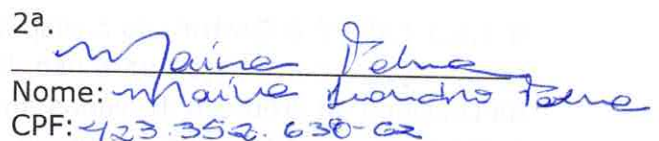 2ª.
Maina Palma
Nome: Maina Leandro Palma
CPF: 423.352.638-02